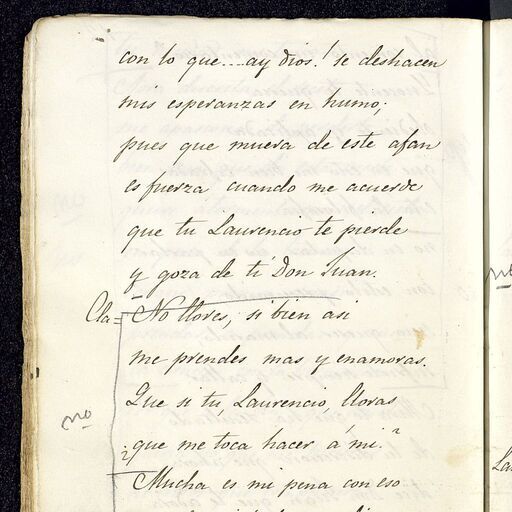 con lo que....ay dios! se deshacen
mis esperanzas en humo;
pues que muera de este afan
es fuerza cuando me acuerde
que tu Laurencio te pierde
y goza de tí Don Juan.
Cla= No llores, si bien asi
me prendes mas y enamoras.
Que si tu, Laurencio, lloras
¿que me toca hacer á mi?
Mucha es mi pena con eso
no
no
La